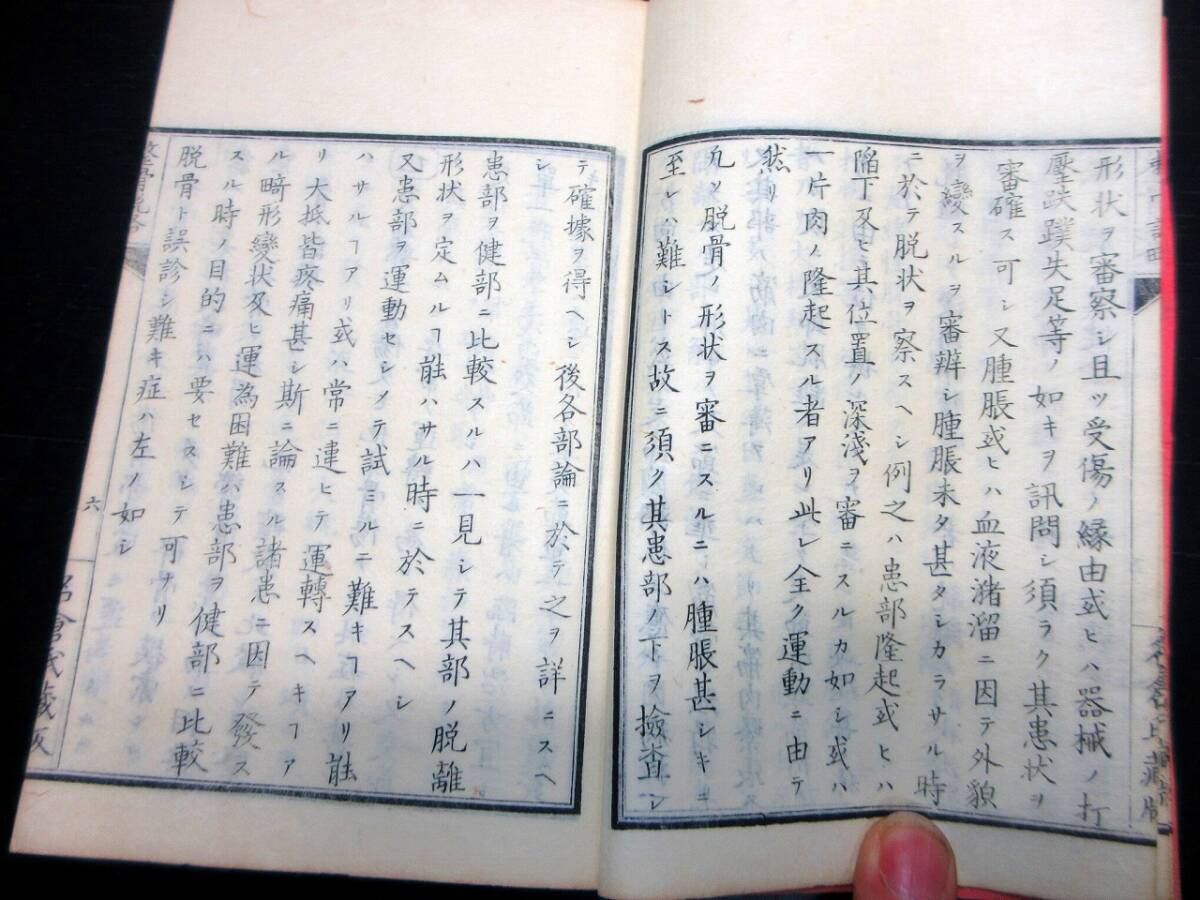 形状ヲ審察シ且ツ受傷ノ縁由或ヒハ器械ノ打
壓跌蹼失足等ノ如キヲ訊問シ須ラク其患状ヲ
審確ス可シ又腫脹或ヒハ血液瀦溜ニ因テ外貌
ヲ變スルヲ審辨シ腫脹未タ甚タシカラサル時
ニ於テ脱状ヲ察スヘシ例之ハ患部隆起或ヒハ
陥下及ヒ其位置ノ深淺ヲ審ニスルカ如シ或ハ
一片肉ノ隆起スル者アリ此レ全ク運動ニ由テ
然リ
九ソ脱骨ノ形状ヲ審ニスルニハ腫脹甚シキニ
至レハ難シトス故ニ須ク其患部ノ下ヲ撿査シ
テ確據ヲ得ヘシ後各部論ニ於テ之ヲ詳ニスヘ
シ
患部ヲ健部ニ比較スルハ一見シテ其部ノ脱離
形状ヲ定ムルヿ能ハサル時ニ於テスヘシ
又患部ヲ運動セシメテ試ミルニ難キヿアリ能
ハサルヿアリ或ハ常ニ違ヒテ運轉スヘキヿア
リ大抵皆疼痛甚シ斯ニ論スル諸患ニ因テ發ス
ル畸形變状及ヒ運為困難ハ患部ヲ健部ニ比較
スル時ノ目的ニハ要セスシテ可ナリ
脱骨ト誤診シ難キ症ハ左ノ如シ
六